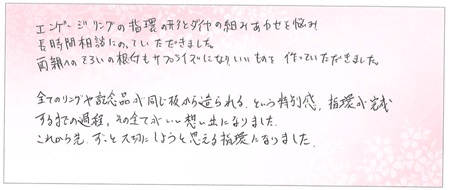 エンゲージリングの指環の形とダイヤの組みあわせを悩み
長時間相談にのっていただきました。
両親へのそろいの根付もサプライズになりいいものを作っていただきました。
全てのリングや記念品が同じ板から造られる、という特別感、指環が完成
するまでの過程、その全てがいい想い出になりました。
これから先、ずっと大切にしようと思える指環になりました。